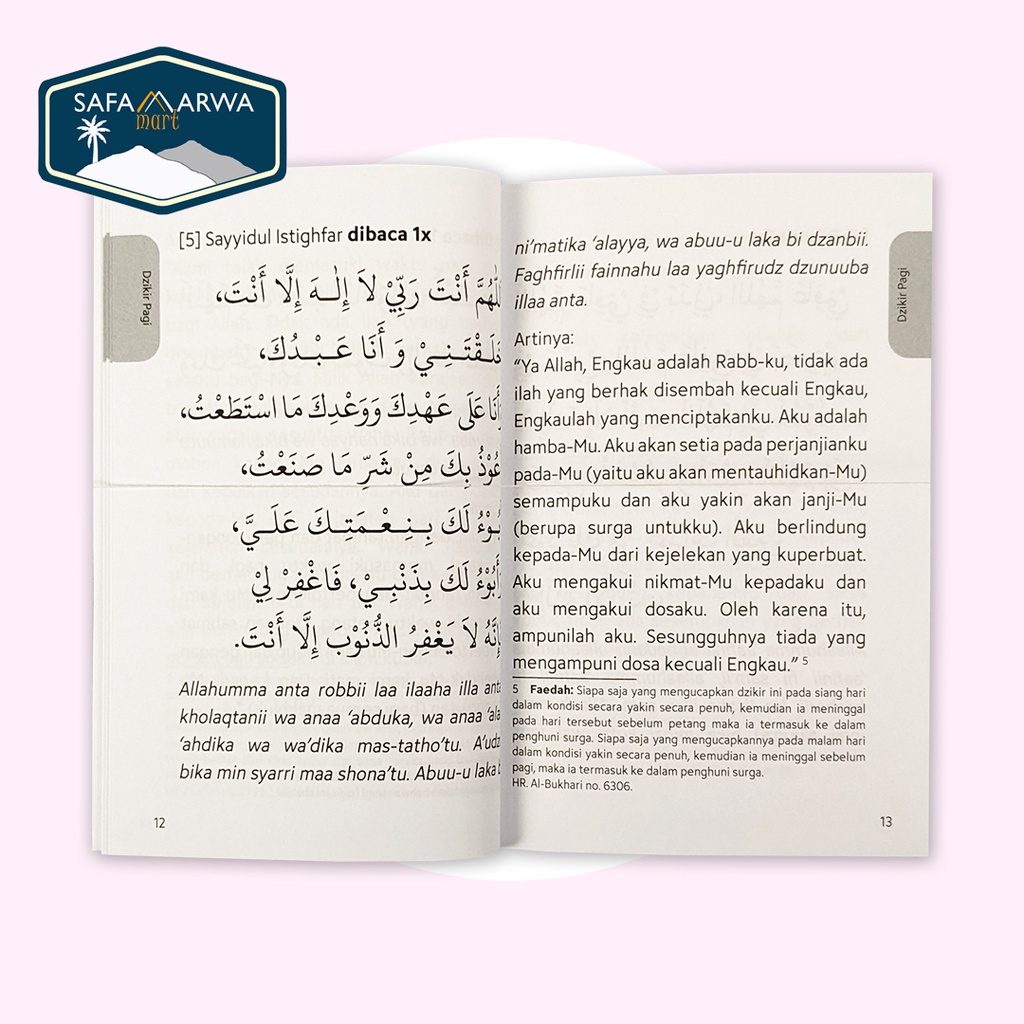 SAFA MARWA
mart
Dzikir Pagi
[5] Sayyidul Istighfar dibaca 1x
اللّٰهُمَّ أَنْتَ رَبِّيْ لاَ إِلٰـهَ إِلَّا أَنْتَ،
خَلَـقْتَـنِـيْ وَ أَنَا عَـبْـدُكَ،
وَأَنَا عَلَى عَهْدِكَ وَوَعْدِكَ مَا اسْتَطَعْتُ،
أَعُوْذُ بِكَ مِنْ شَرِّ مَا صَنَعْتُ،
أَبُـوْءُ لَكَ بِـنِـعْـمَتِـكَ عَلَـيَّ،
وَأَبُوْءُ لَكَ بِذَنْبِـيْ، فَاغْفِرْ لِيْ
فَإِنَّهُ لاَ يَغْفِرُ الذُّنُوْبَ إِلَّا أَنْتَ.
Allahumma anta robbii laa ilaaha illa anta
kholaqtanii wa anaa ‘abduka, wa anaa ‘ala
‘ahdika wa wa’dika mas-tatho’tu. A’udz
bika min syarri maa shona’tu. Abuu-u laka b
12
ni’matika ‘alayya, wa abuu-u laka bi dzanbii.
Faghfirlii fainnahu laa yaghfirudz dzunuuba
illaa anta.
Artinya:
“Ya Allah, Engkau adalah Rabb-ku, tidak ada
ilah yang berhak disembah kecuali Engkau,
Engkaulah yang menciptakanku. Aku adalah
hamba-Mu. Aku akan setia pada perjanjianku
pada-Mu (yaitu aku akan mentauhidkan-Mu)
semampuku dan aku yakin akan janji-Mu
(berupa surga untukku). Aku berlindung
kepada-Mu dari kejelekan yang kuperbuat.
Aku mengakui nikmat-Mu kepadaku dan
aku mengakui dosaku. Oleh karena itu,
ampunilah aku. Sesungguhnya tiada yang
mengampuni dosa kecuali Engkau.” 5
5 Faedah: Siapa saja yang mengucapkan dzikir ini pada siang hari
dalam kondisi secara yakin secara penuh, kemudian ia meninggal
pada hari tersebut sebelum petang maka ia termasuk ke dalam
penghuni surga. Siapa saja yang mengucapkannya pada malam hari
dalam kondisi yakin secara penuh, kemudian ia meninggal sebelum
pagi, maka ia termasuk ke dalam penghuni surga.
HR. Al-Bukhari no. 6306.
13
Dzikir Pagi